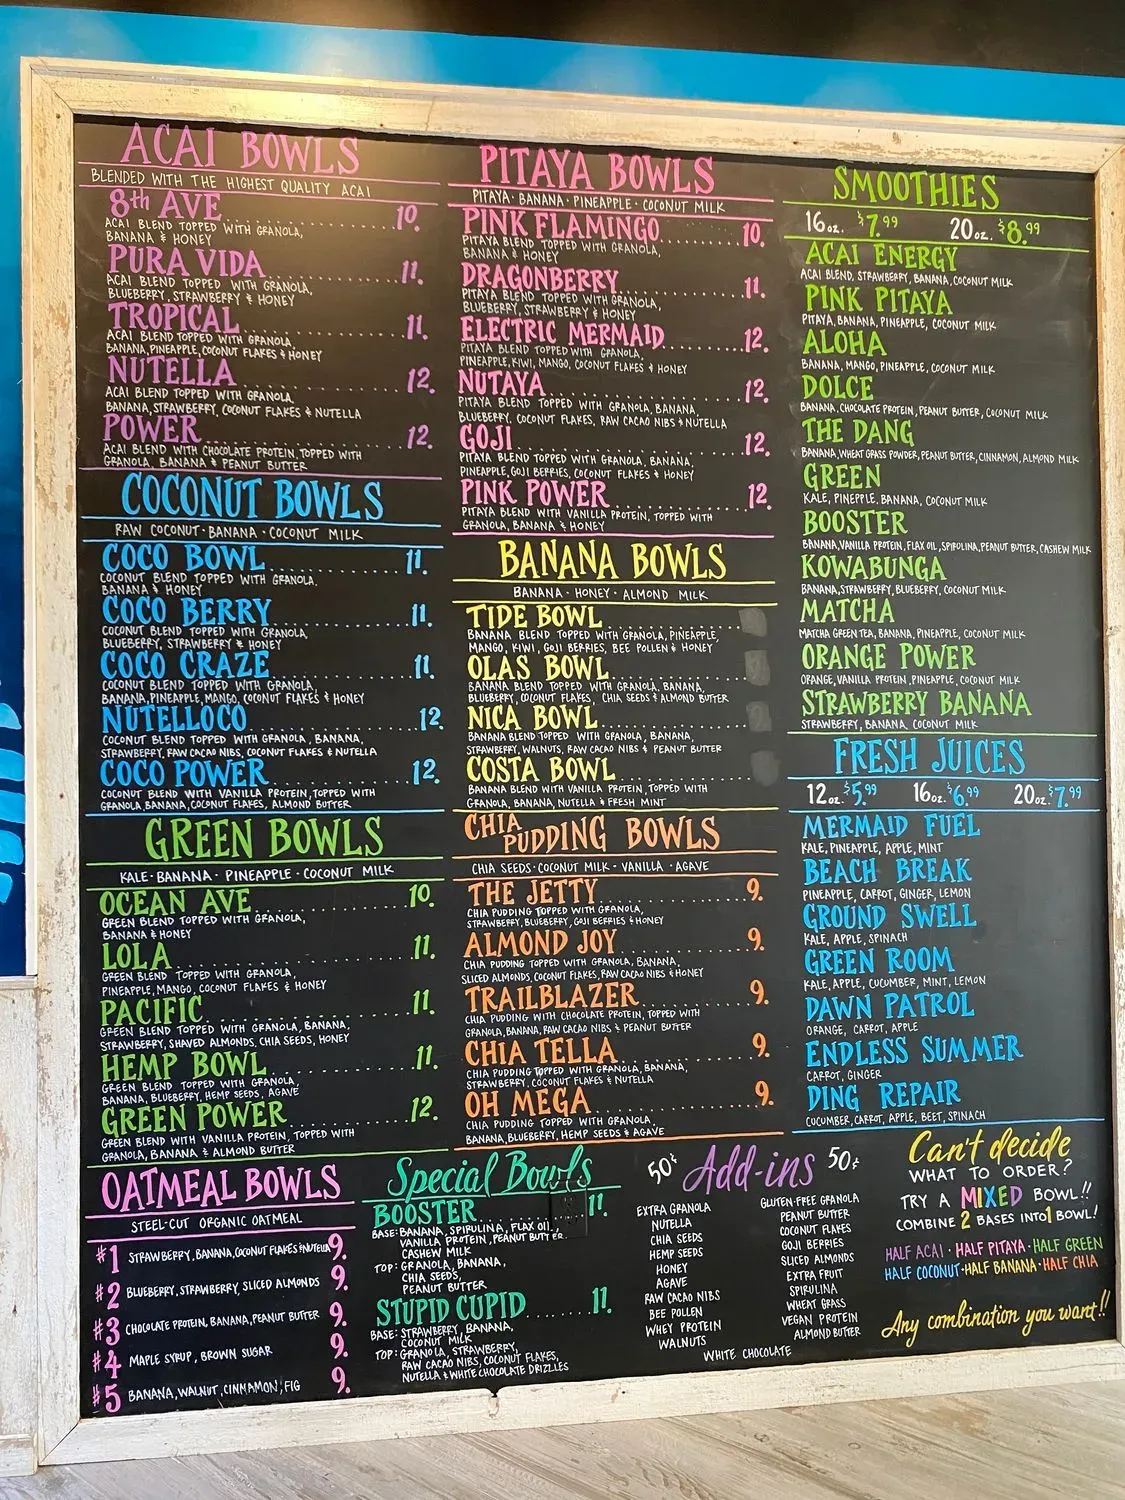 ACAI BOWLS
BLENDED WITH THE HIGHEST QUALITY ACAI
8th AVE..........10.
ACAI BLEND TOPPED WITH GRANOLA,
BANANA & HONEY
PURA VIDA..........11.
ACAI BLEND TOPPED WITH GRANOLA,
BLUEBERRY, STRAWBERRY & HONEY
TROPICAL..........11.
ACAI BLEND TOPPED WITH GRANOLA,
BANANA, PINEAPPLE, COCONUT FLAKES & HONEY
NUTELLA..........12.
ACAI BLEND TOPPED WITH GRANOLA,
BANANA, STRAWBERRY, COCONUT FLAKES & NUTELLA
POWER..........12.
ACAI BLEND WITH CHOCOLATE PROTEIN, TOPPED WITH
GRANOLA, BANANA & PEANUT BUTTER
COCONUT BOWLS
RAW COCONUT · BANANA · COCONUT MILK
COCO BOWL..........11.
COCONUT BLEND TOPPED WITH GRANOLA,
BANANA & HONEY
COCO BERRY..........11.
COCONUT BLEND TOPPED WITH GRANOLA,
BLUEBERRY, STRAWBERRY & HONEY
COCO CRAZE..........11.
COCONUT BLEND TOPPED WITH GRANOLA,
BANANA, PINEAPPLE, MANGO, COCONUT FLAKES & HONEY
NUTELLOCO..........12.
COCONUT BLEND TOPPED WITH GRANOLA, BANANA,
STRAWBERRY, RAW CACAO NIBS, COCONUT FLAKES & NUTELLA
COCO POWER..........12.
COCONUT BLEND WITH VANILLA PROTEIN, TOPPED WITH
GRANOLA, BANANA, COCONUT FLAKES, ALMOND BUTTER
GREEN BOWLS
KALE · BANANA · PINEAPPLE · COCONUT MILK
OCEAN AVE..........10.
GREEN BLEND TOPPED WITH GRANOLA,
BANANA & HONEY
LOLA..........11.
GREEN BLEND TOPPED WITH GRANOLA,
PINEAPPLE, MANGO, COCONUT FLAKES & HONEY
PACIFIC..........11.
GREEN BLEND TOPPED WITH GRANOLA, BANANA,
STRAWBERRY, SHAVED ALMONDS, CHIA SEEDS, HONEY
HEMP BOWL..........11.
GREEN BLEND TOPPED WITH GRANOLA,
BANANA, BLUEBERRY, HEMP SEEDS, AGAVE
GREEN POWER..........12.
GREEN BLEND WITH VANILLA PROTEIN, TOPPED WITH
GRANOLA, BANANA & ALMOND BUTTER
OATMEAL BOWLS
STEEL-CUT ORGANIC OATMEAL
#1 STRAWBERRY, BANANA, COCONUT FLAKES & NUTELLA 9.
#2 BLUEBERRY, STRAWBERRY, SLICED ALMONDS 9.
#3 CHOCOLATE PROTEIN, BANANA, PEANUT BUTTER 9.
#4 MAPLE SYRUP, BROWN SUGAR 9.
#5 BANANA, WALNUT, CINNAMON, FIG 9.
PITAYA BOWLS
PITAYA · BANANA · PINEAPPLE · COCONUT MILK
PINK FLAMINGO..........10.
PITAYA BLEND TOPPED WITH GRANOLA,
BANANA & HONEY
DRAGONBERRY..........11.
PITAYA BLEND TOPPED WITH GRANOLA,
BLUEBERRY, STRAWBERRY & HONEY
ELECTRIC MERMAID..........12.
PITAYA BLEND TOPPED WITH GRANOLA,
PINEAPPLE, KIWI, MANGO, COCONUT FLAKES & HONEY
NUTAYA..........12.
PITAYA BLEND TOPPED WITH GRANOLA, BANANA,
BLUEBERRY, COCONUT FLAKES, RAW CACAO NIBS & NUTELLA
GOJI..........12.
PITAYA BLEND TOPPED WITH GRANOLA, BANANA,
PINEAPPLE, GOJI BERRIES, COCONUT FLAKES & HONEY
PINK POWER..........12.
PITAYA BLEND WITH VANILLA PROTEIN, TOPPED WITH
GRANOLA, BANANA & HONEY
BANANA BOWLS
BANANA · HONEY · ALMOND MILK
TIDE BOWL
BANANA BLEND TOPPED WITH GRANOLA, PINEAPPLE,
MANGO, KIWI, GOJI BERRIES, BEE POLLEN & HONEY
OLAS BOWL
BANANA BLEND TOPPED WITH GRANOLA, BANANA,
BLUEBERRY, COCONUT FLAKES, CHIA SEEDS & ALMOND BUTTER
NICA BOWL
BANANA BLEND TOPPED WITH GRANOLA, BANANA,
STRAWBERRY, WALNUTS, RAW CACAO NIBS & PEANUT BUTTER
COSTA BOWL
BANANA BLEND WITH VANILLA PROTEIN, TOPPED WITH
GRANOLA, BANANA, NUTELLA & FRESH MINT
CHIA PUDDING BOWLS
CHIA SEEDS · COCONUT MILK · VANILLA · AGAVE
THE JETTY..........9.
CHIA PUDDING TOPPED WITH GRANOLA,
STRAWBERRY, BLUEBERRY, GOJI BERRIES & HONEY
ALMOND JOY..........9.
CHIA PUDDING TOPPED WITH GRANOLA, BANANA,
SLICED ALMONDS, COCONUT FLAKES, RAW CACAO NIBS & HONEY
TRAILBLAZER..........9.
CHIA PUDDING WITH CHOCOLATE PROTEIN, TOPPED WITH
GRANOLA, BANANA, RAW CACAO NIBS & PEANUT BUTTER
CHIA TELLA..........9.
CHIA PUDDING TOPPED WITH GRANOLA, BANANA,
STRAWBERRY, COCONUT FLAKES & NUTELLA
OH MEGA..........9.
CHIA PUDDING TOPPED WITH GRANOLA,
BANANA, BLUEBERRY, HEMP SEEDS & AGAVE
Special Bowls
BOOSTER..........11.
BASE: BANANA, SPIRULINA, FLAX OIL,
VANILLA PROTEIN, PEANUT BUTTER
CASHEW MILK
TOP: GRANOLA, BANANA,
CHIA SEEDS,
PEANUT BUTTER
STUPID CUPID......11.
BASE: STRAWBERRY, BANANA,
COCONUT MILK
TOP: GRANOLA, STRAWBERRY,
RAW CACAO NIBS, COCONUT FLAKES,
NUTELLA & WHITE CHOCOLATE DRIZZLES
50¢ Add-ins 50¢
EXTRA GRANOLA
NUTELLA
CHIA SEEDS
HEMP SEEDS
HONEY
AGAVE
RAW CACAO NIBS
BEE POLLEN
WHEY PROTEIN
WALNUTS
GLUTEN-FREE GRANOLA
PEANUT BUTTER
COCONUT FLAKES
GOJI BERRIES
SLICED ALMONDS
EXTRA FRUIT
SPIRULINA
WHEAT GRASS
VEGAN PROTEIN
ALMOND BUTTER
WHITE CHOCOLATE
SMOOTHIES
16oz. $7.99 20oz. $8.99
ACAI ENERGY
ACAI BLEND, STRAWBERRY, BANANA, COCONUT MILK
PINK PITAYA
PITAYA, BANANA, PINEAPPLE, COCONUT MILK
ALOHA
BANANA, MANGO, PINEAPPLE, COCONUT MILK
DOLCE
BANANA, CHOCOLATE PROTEIN, PEANUT BUTTER, COCONUT MILK
THE DANG
BANANA, WHEAT GRASS POWDER, PEANUT BUTTER, CINNAMON, ALMOND MILK
GREEN
KALE, PINEPPLE, BANANA, COCONUT MILK
BOOSTER
BANANA, VANILLA PROTEIN, FLAX OIL, SPIRULINA, PEANUT BUTTER, CASHEW MILK
KOWABUNGA
BANANA, STRAWBERRY, BLUEBERRY, COCONUT MILK
MATCHA
MATCHA GREEN TEA, BANANA, PINEAPPLE, COCONUT MILK
ORANGE POWER
ORANGE, VANILLA PROTEIN, PINEAPPLE, COCONUT MILK
STRAWBERRY BANANA
STRAWBERRY, BANANA, COCONUT MILK
FRESH JUICES
12oz. $5.99 16oz. $6.99 20oz. $7.99
MERMAID FUEL
KALE, PINEAPPLE, APPLE, MINT
BEACH BREAK
PINEAPPLE, CARROT, GINGER, LEMON
GROUND SWELL
KALE, APPLE, SPINACH
GREEN ROOM
KALE, APPLE, CUCUMBER, MINT, LEMON
DAWN PATROL
ORANGE, CARROT, APPLE
ENDLESS SUMMER
CARROT, GINGER
DING REPAIR
CUCUMBER, CARROT, APPLE, BEET, SPINACH
Can't decide
WHAT TO ORDER?
TRY A MIXED BOWL!!
COMBINE 2 BASES INTO 1 BOWL!
HALF ACAI · HALF PITAYA · HALF GREEN
HALF COCONUT · HALF BANANA · HALF CHIA
Any combination you want!!